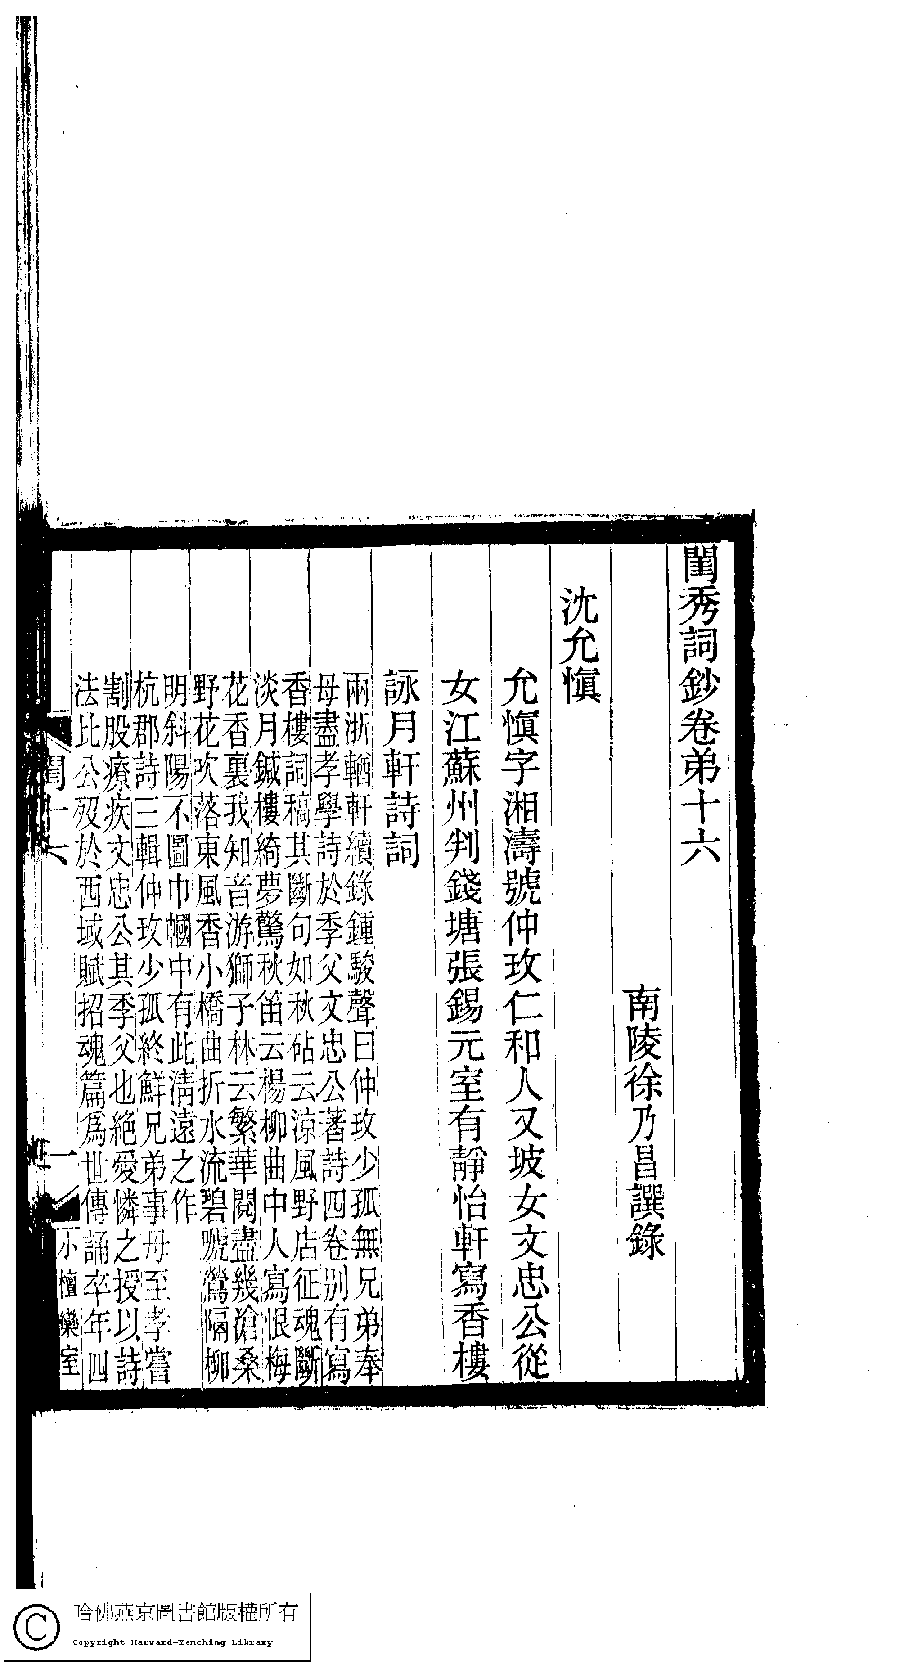 閨秀詞鈔卷弟十六
南陵徐乃昌譔錄
沈允慎
允慎字湘濤號仲玫仁和人又坡女文忠公從
女江蘇州判錢塘張錫元室有靜怡軒寫香樓
詠月軒詩詞
兩浙輶軒續錄鍾駿聲曰仲玫少孤無兄弟奉
母盡孝學詩於季父文忠公著詩四卷別有寫
香樓詞稿其斷句如秋砧云涼風野店征魂斷
淡月鍼樓綺夢驚秋笛云楊柳曲中人寫恨梅
花香裏我知音游獅子林云繁華閱盡幾滄桑
野花吹落東風香小橋曲折水流碧嗁鶯隔柳
明斜陽不圖巾幗中有此清遠之作
杭郡詩三輯仲玫少孤終鮮兄弟事母至孝嘗
割股療疾文忠公其季父也絕愛憐之授以詩
法比公歿於西域賦招魂篇爲世傳誦卒年四
閨十六
一
小檀欒室
哈佛燕京圖書館版權所有
Copyright Harvard-Yenching Library